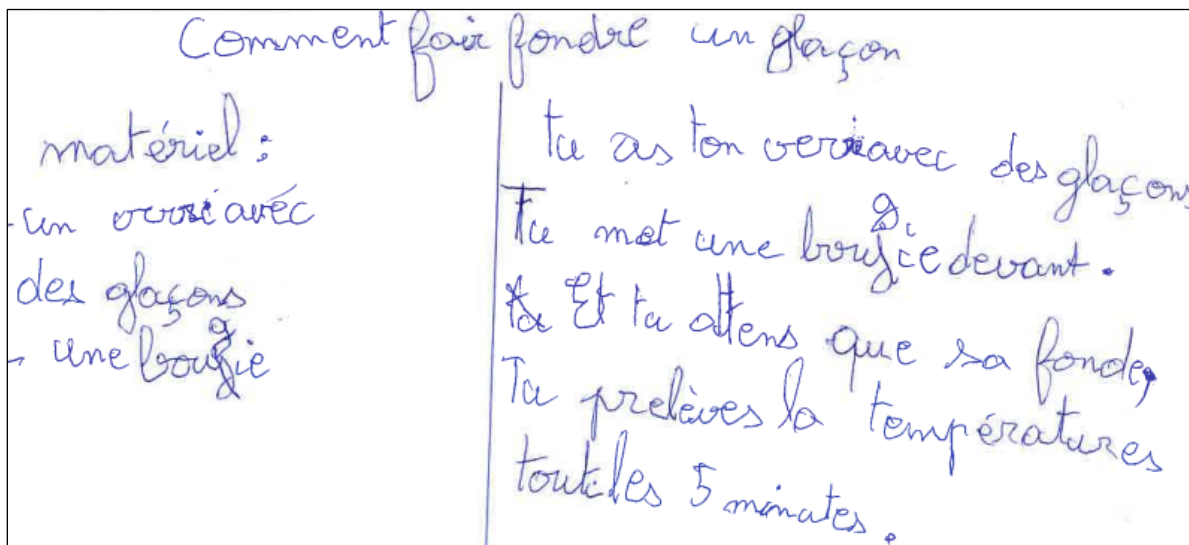 Comment fair fondre un glaçon
matériel :
- un verre avec
des glaçons
- une bougie
tu as ton verre avec des glaçons,
Tu met une bougie devant.
Et tu attens que sa fonde,
Tu prelèves la températures
tout les 5 minutes.